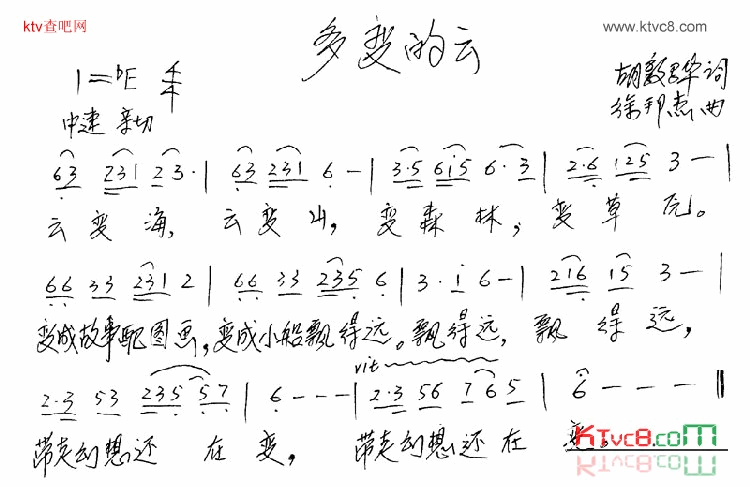 ktv查吧网
www.ktvc8.com
多变的云
1=♭E 4/4
胡敦骅词
徐邦杰曲
中速 亲切
63 231 23· | 63 231 6 - | 3·5 6i5 6·3 | 2·6 125 3 - |
云变海，云变山，变森林，变草元。
66 33 2312 | 66 33 235 6 | 3·i 6 - | 216 15 3 - |
变成故事配图画，变成小船飘得远。飘得远，飘得远，
rit
2·3 53 235 57 | 6 - - - | 2·3 56 765 | 6 - - - ‖
带走幻想还在变，带走幻想还在变。
KTvc8.com